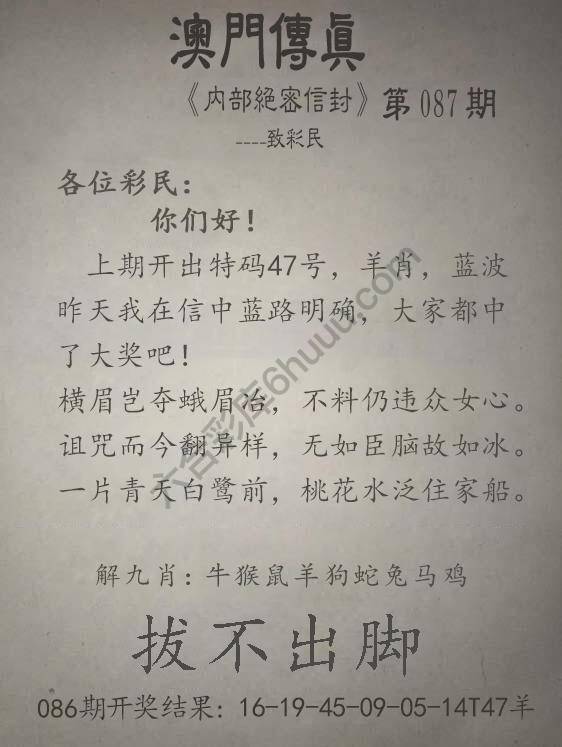 澳門傳真
《内部絕密信封》第087期
----致彩民
各位彩民：
你们好！
上期开出特码47号，羊肖，蓝波
昨天我在信中蓝路明确，大家都中
了大奖吧！
横眉岂夺蛾眉冶，不料仍违众女心。
诅咒而今翻异样，无如臣脑故如冰。
一片青天白鹭前，桃花水泛住家船。
六合彩库6huuu.com
解九肖：牛猴鼠羊狗蛇兔马鸡
拔不出脚
086期开奖结果：16-19-45-09-05-14T47羊